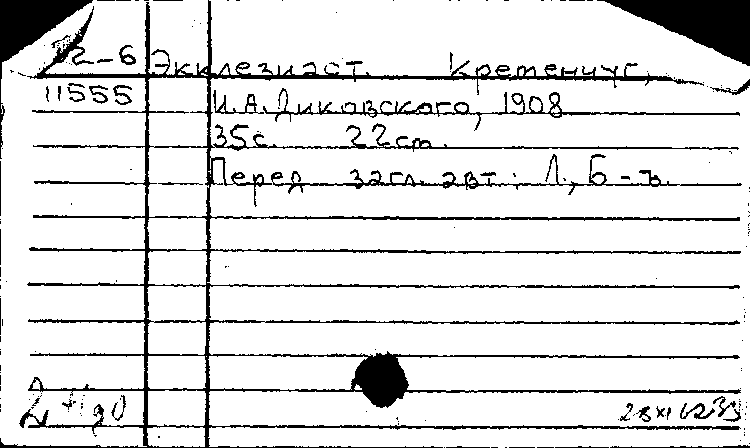 2-6 Экклезиаст. Кременчуг,
11555 И.А.Диковского, 1908
35с. 22cm.
Перед загл. авт.: Л., Б-ъ.